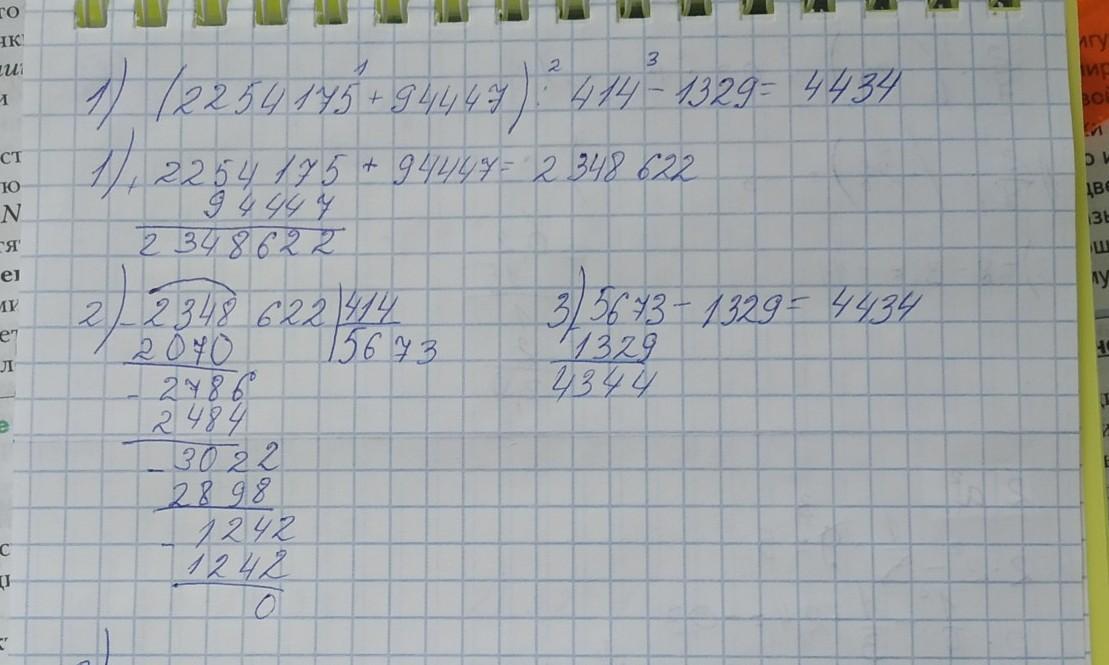 1) (2254175 + 94447) : 414 - 1329 = 4434
1 2 3
1) 2254175 + 94447 = 2348622
+ 94447
2348622
2) - 2348622 | 414
2070 | 5673
- 2786
2484
- 3022
2898
- 1242
1242
0
3) 5673 - 1329 = 4434
1329
4344